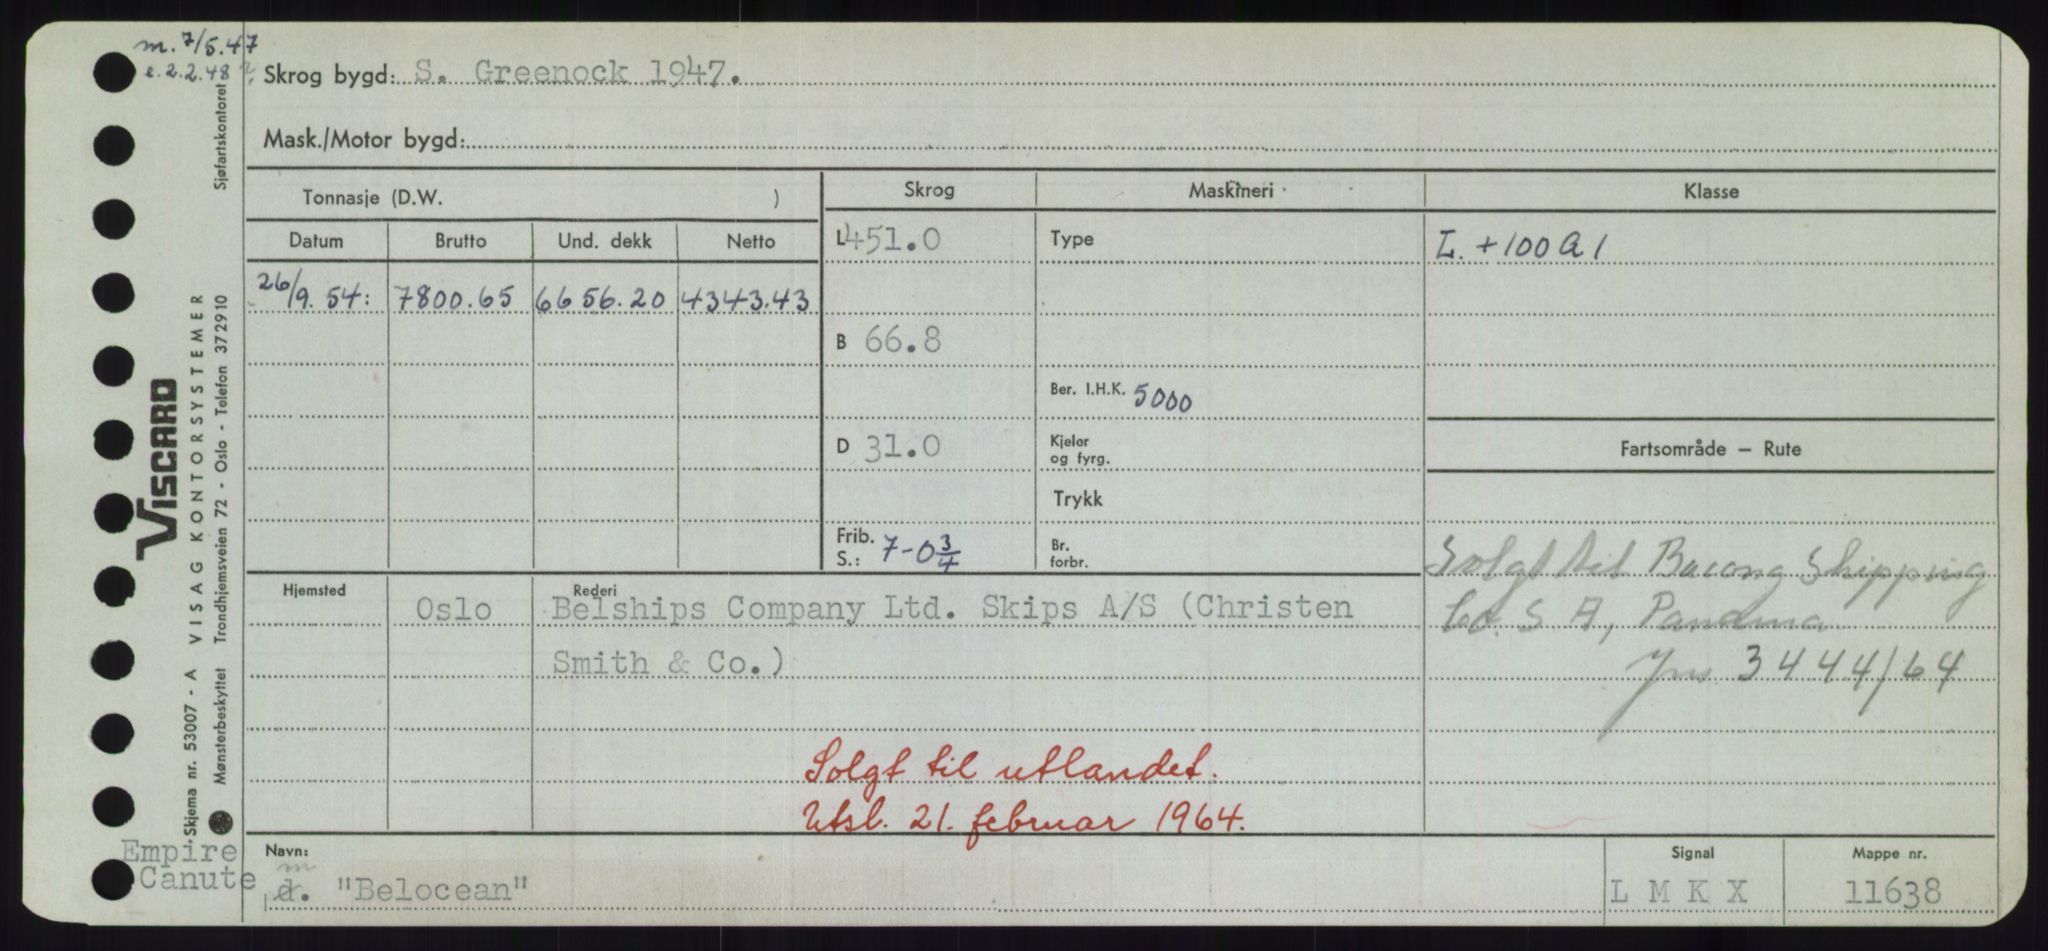 m. 7/5.47
e. 2.2.48
Skrog bygd: S. Greenock 1947.
Mask./Motor bygd:
Tonnasje (D.W. )
Skrog
Maskineri
Klasse
Datum Brutto Und. dekk Netto
L 451.0
Type
L. +100 A 1
26/9. 54: 7800.65 6656.20 4343.43
B 66.8
Ber. I.H.K. 5000
D 31.0
Kjeler
og fyrg.
Fartsområde — Rute
Trykk
Frib.
S.: 7-0 3/4
Br.
forbr.
Solgt til Bacong Shipping
Co. S A, Panama
Jnr. 3444/64
Hjemsted
Oslo
Rederi
Belships Company Ltd. Skips A/S (Christen
Smith & Co.)
Solgt til utlandet.
Utsl. 21. februar 1964.
Empire
Canute
Navn:
m
d. "Belocean"
Signal
L M K X
Mappe nr.
11638
Skjema nr. 53007 - A VISAG KONTORSYSTEMER
VISCARD
Mønsterbeskyttet Trondhjemsveien 72 - Oslo - Telefon 372910 Sjøfartskontoret